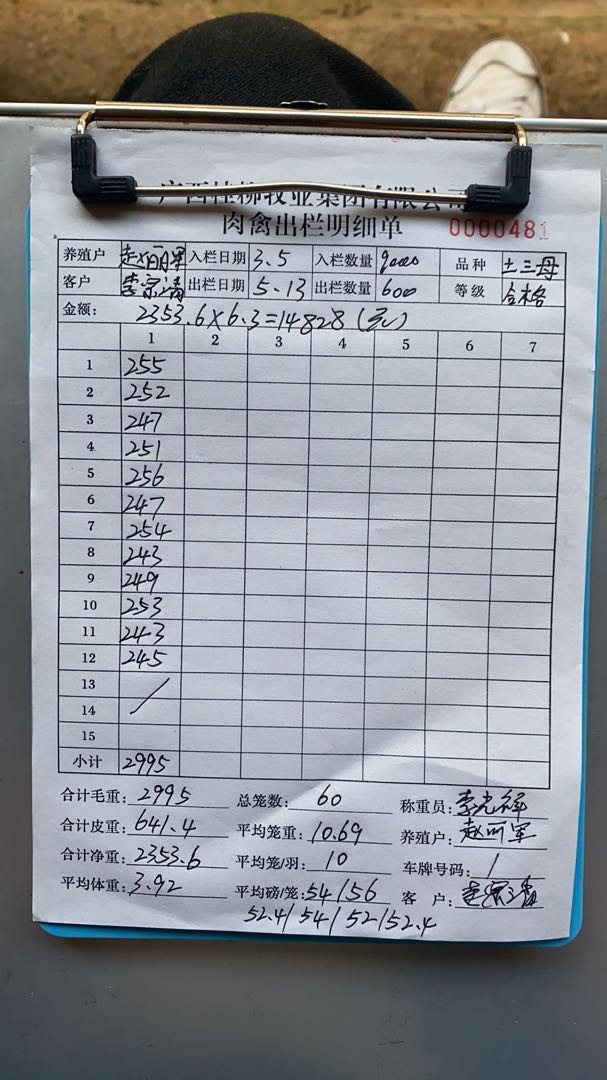 广西桂柳牧业集团有限公司
肉禽出栏明细单 0000481
养殖户 赵丽军 入栏日期 3.5 入栏数量 9000 品种 土三母
客户 李宗清 出栏日期 5.13 出栏数量 600 等级 合格
金额: 2353.6×6.3=14828(元)
1 2 3 4 5 6 7
1 255
2 252
3 247
4 251
5 256
6 247
7 254
8 243
9 249
10 253
11 243
12 245
13 /
14
15
小计 2995
合计毛重: 2995 总笼数: 60 称重员: 李光祥
合计皮重: 641.4 平均笼重: 10.69 养殖户: 赵丽军
合计净重: 2353.6 平均笼/羽: 10 车牌号码: /
平均体重: 3.92 平均磅/笼: 54/56 客户: 李宗清
52.4/54/52/52.4